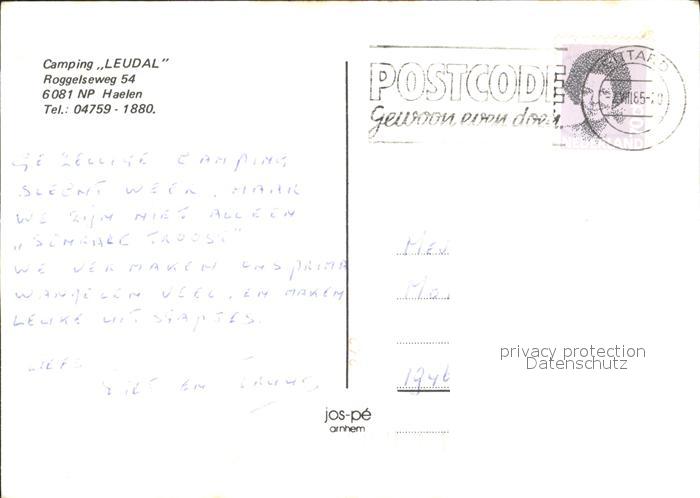 Camping „LEUDAL"
Roggelseweg 54
6081 NP Haelen
Tel.: 04759 - 1880.
POSTCODE
Gewoon even doen.
SITTARD
NEDERLAND
GEZELLIGE CAMPING
SLECHT WEER, MAAR
WE ZIJN NIET ALLEEN
„SCHRALE TROOST"
WE VERMAKEN ONS PRIMA
WANDELEN VEEL, EN MAKEN
LEUKE UITSTAPJES.
LIEFS
PIET EN
privacy protection
Datenschutz
jos-pé
arnhem